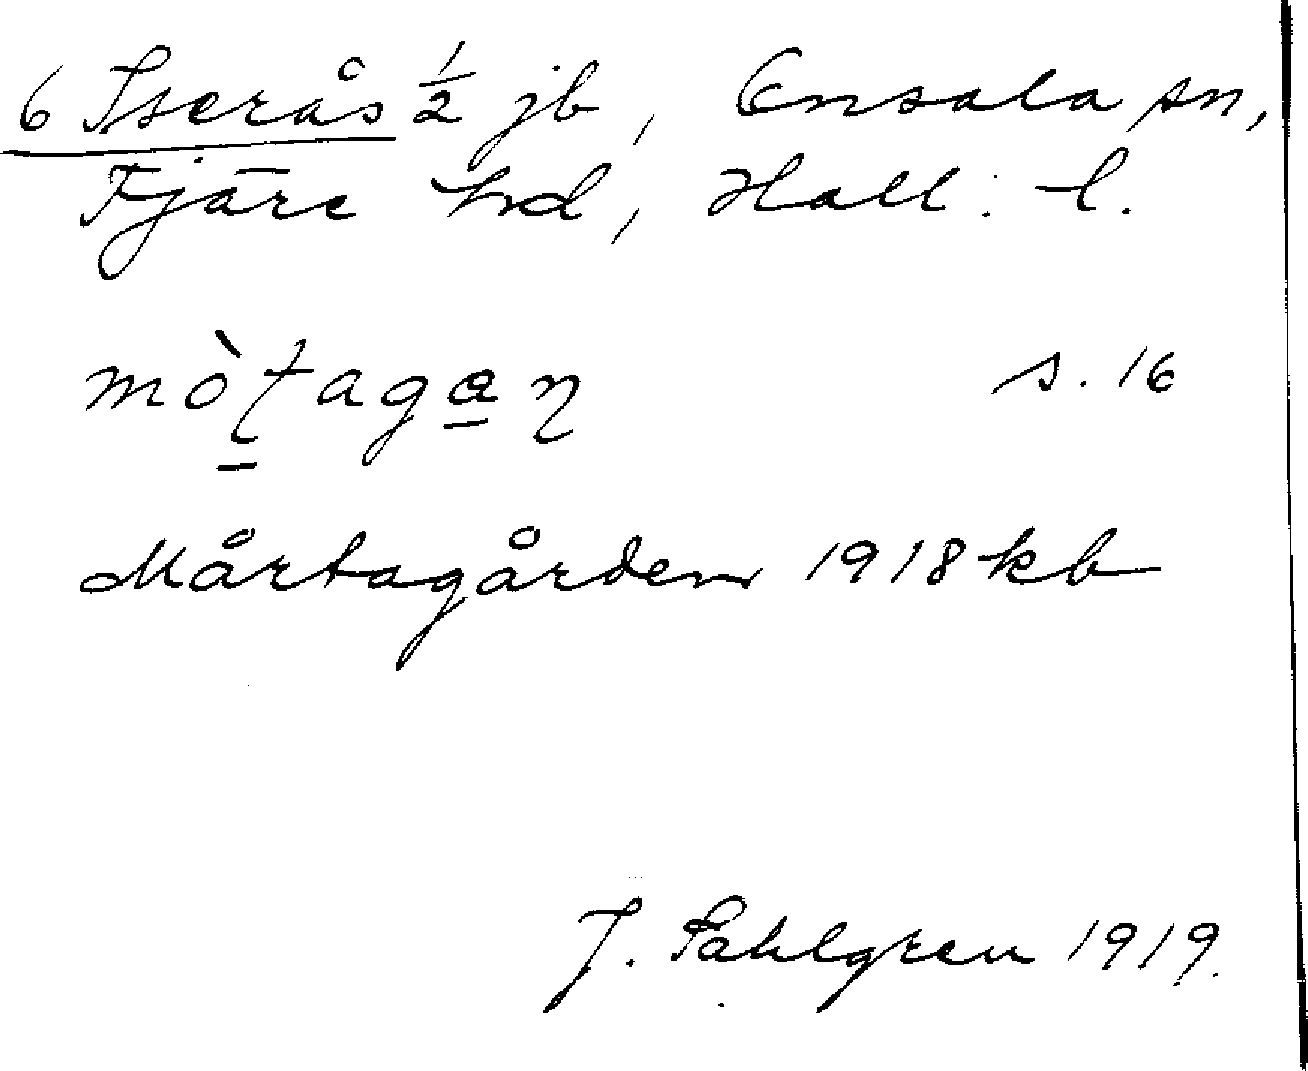 6 Iserås 1/2 jb, Onsala sn,
Fjäre hd, Hall. l.
mòʈagan̡ s. 16
Mårtagården 1918 kb
J. Sahlgren 1919.